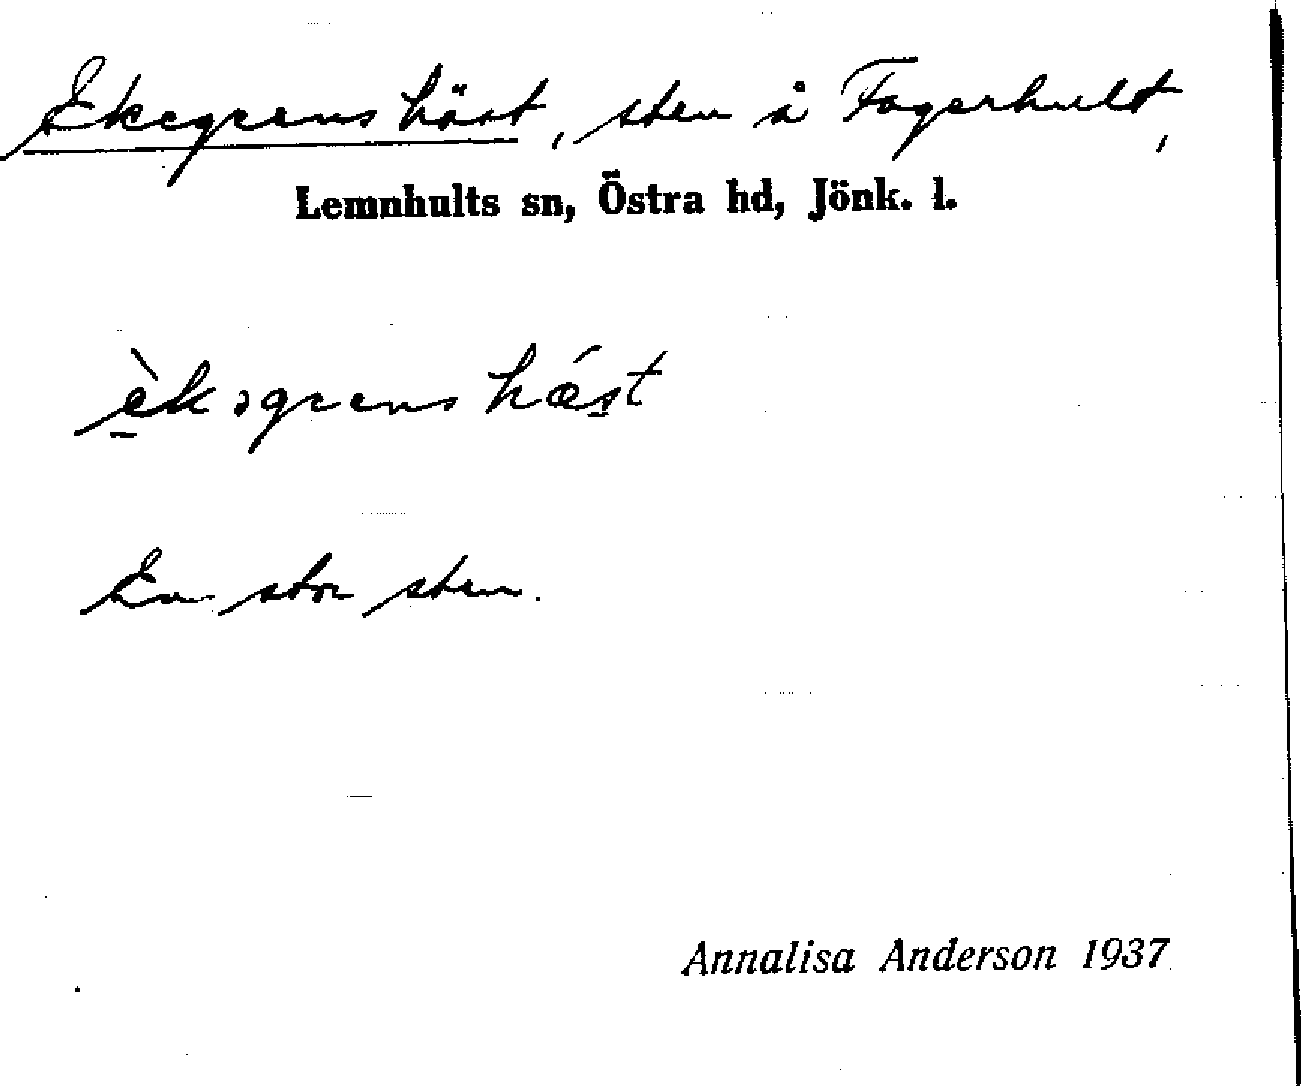 Ekegrens häst, sten å Fagerhult,
Lemnhults sn, Östra hd, Jönk. l.
è̠kəgrens hǽs̠t
En stor sten.
Annalisa Anderson 1937